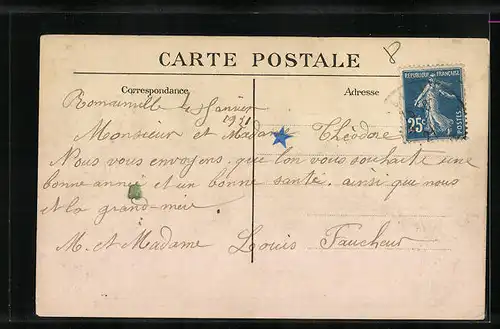 8
CARTE POSTALE
Correspondance
Adresse
RÉPUBLIQUE FRANÇAISE
25c
POSTES
Janvier
1921
Monsieur et Madame Théodore
Nous vous envoyons que l'on vous souhaite une
bonne année et un bonne santé. ainsi que nous
et la grand-mère
M. et Madame Louis Faucheur